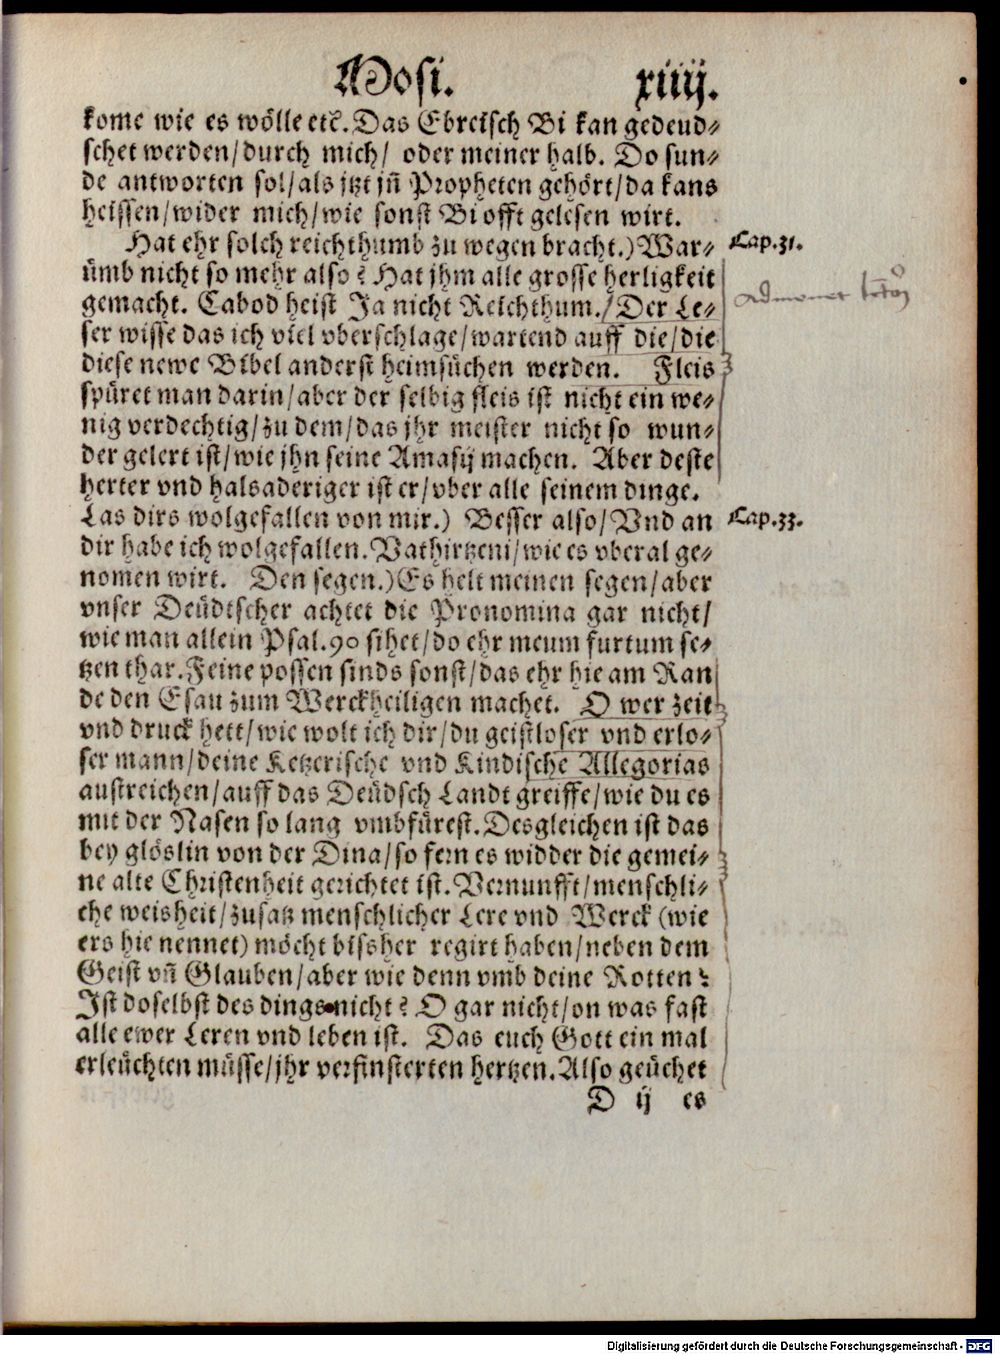 Mosi. xiiij.
kome wie es wölle etc̃. Das Ebreisch Bi kan gedeud⸗
schet werden/durch mich/ oder meiner halb. Do sun⸗
de antworten sol/als jtzt jñ Propheten gehört/da kans
heissen/wider mich/wie sonst Bi offt gelesen wirt.
Hat ehr solch reichthumb zu wegen bracht.) War⸗ Cap.31.
ümb nicht so mehr also? Hat jhm alle grosse herligkeit
gemacht. Cabod heist Ja nicht Reichthum./Der Le⸗ Admonet
ser wisse das ich viel vberschlage/wartend auff die/die
diese newe Bibel anderst heimsüchen werden. Fleis
spüret man darin/aber der selbig fleis ist nicht ein we⸗
nig verdechtig/zu dem/das jhr meister nicht so wun⸗
der gelert ist/wie jhn seine Amasij machen. Aber deste
herter vnd halsaderiger ist er/vber alle seinem dinge.
Las dirs wolgefallen von mir.) Besser also/Vnd an Cap.33.
dir habe ich wolgefallen. Vathirtzeni/wie es vberal ge⸗
nomen wirt. Den segen.) Es helt meinen segen/aber
vnser Deüdtscher achtet die Pronomina gar nicht/
wie man allein Psal.90 sihet/do ehr meum furtum se⸗
tzen thar. Feine possen sinds sonst/das ehr hie am Ran
de den Esau zum Werckheiligen machet. O wer zeit
vnd druck hett/wie wolt ich dir/du geistloser vnd erlo⸗
ser mann/deine Ketzerische vnd Kindische Allegorias
austreichen/auff das Deüdsch Landt greiffe/wie du es
mit der Nasen so lang vmbfürest. Desgleichen ist das
bey glöslin von der Dina/so fern es widder die gemei⸗
ne alte Christenheit gerichtet ist. Vernunfft/menschli⸗
che weisheit/zusatz menschlicher Lere vnd Werck (wie
ers hie nennet) möcht bissher regirt haben/neben dem
Geist vñ Glauben/aber wie denn vmb deine Rotten?
Ist doselbst des dings nicht? O gar nicht/on was fast
alle ewer Leren vnd leben ist. Das euch Gott ein mal
erleüchten müsse/jhr verfinsterten hertzen. Also geüchet
D ij es
Digitalisierung gefördert durch die Deutsche Forschungsgemeinschaft - DFG